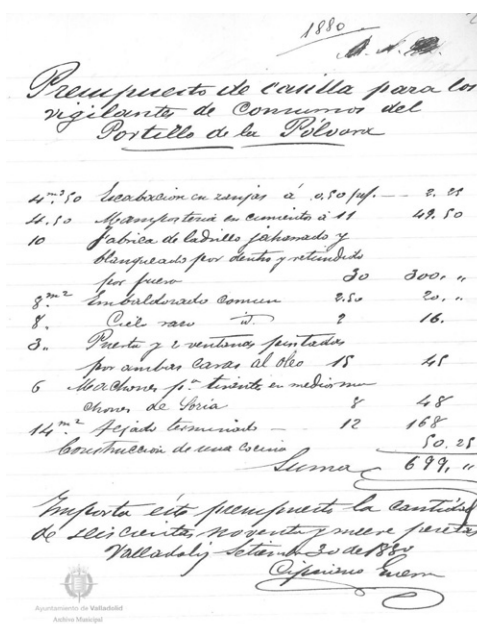 1880
Presupuesto de casilla para los
vigilantes de Consumos del
Portillo de la Pólvora
4 m.³ 50 Escabacion en zanjas á 0,50 2.25
4.50 Mamposteria en cimientos á 11 49.50
10 Fabrica de ladrillo jaharrado y
blanqueado por dentro y retundido
por fuera 30 300. "
8 m.² Embaldosado comun 2.50 20. "
8. Cielo raso id. 2 16.
3. Puerta y 2 ventanas pintadas
por ambas caras al óleo 15 45
6 Machones pª tirante en medios ma
chones de Soria 8 48
14 m.² Tejado terminado — 12 168
Construccion de una cocina 50.25
Suma 699. "
Importa este presupuesto la cantidad
de seiscientas noventa y nueve pesetas
Valladolid Setiembre 30 de 1880
Cipriano Guerra
Ayuntamiento de Valladolid
Archivo Municipal